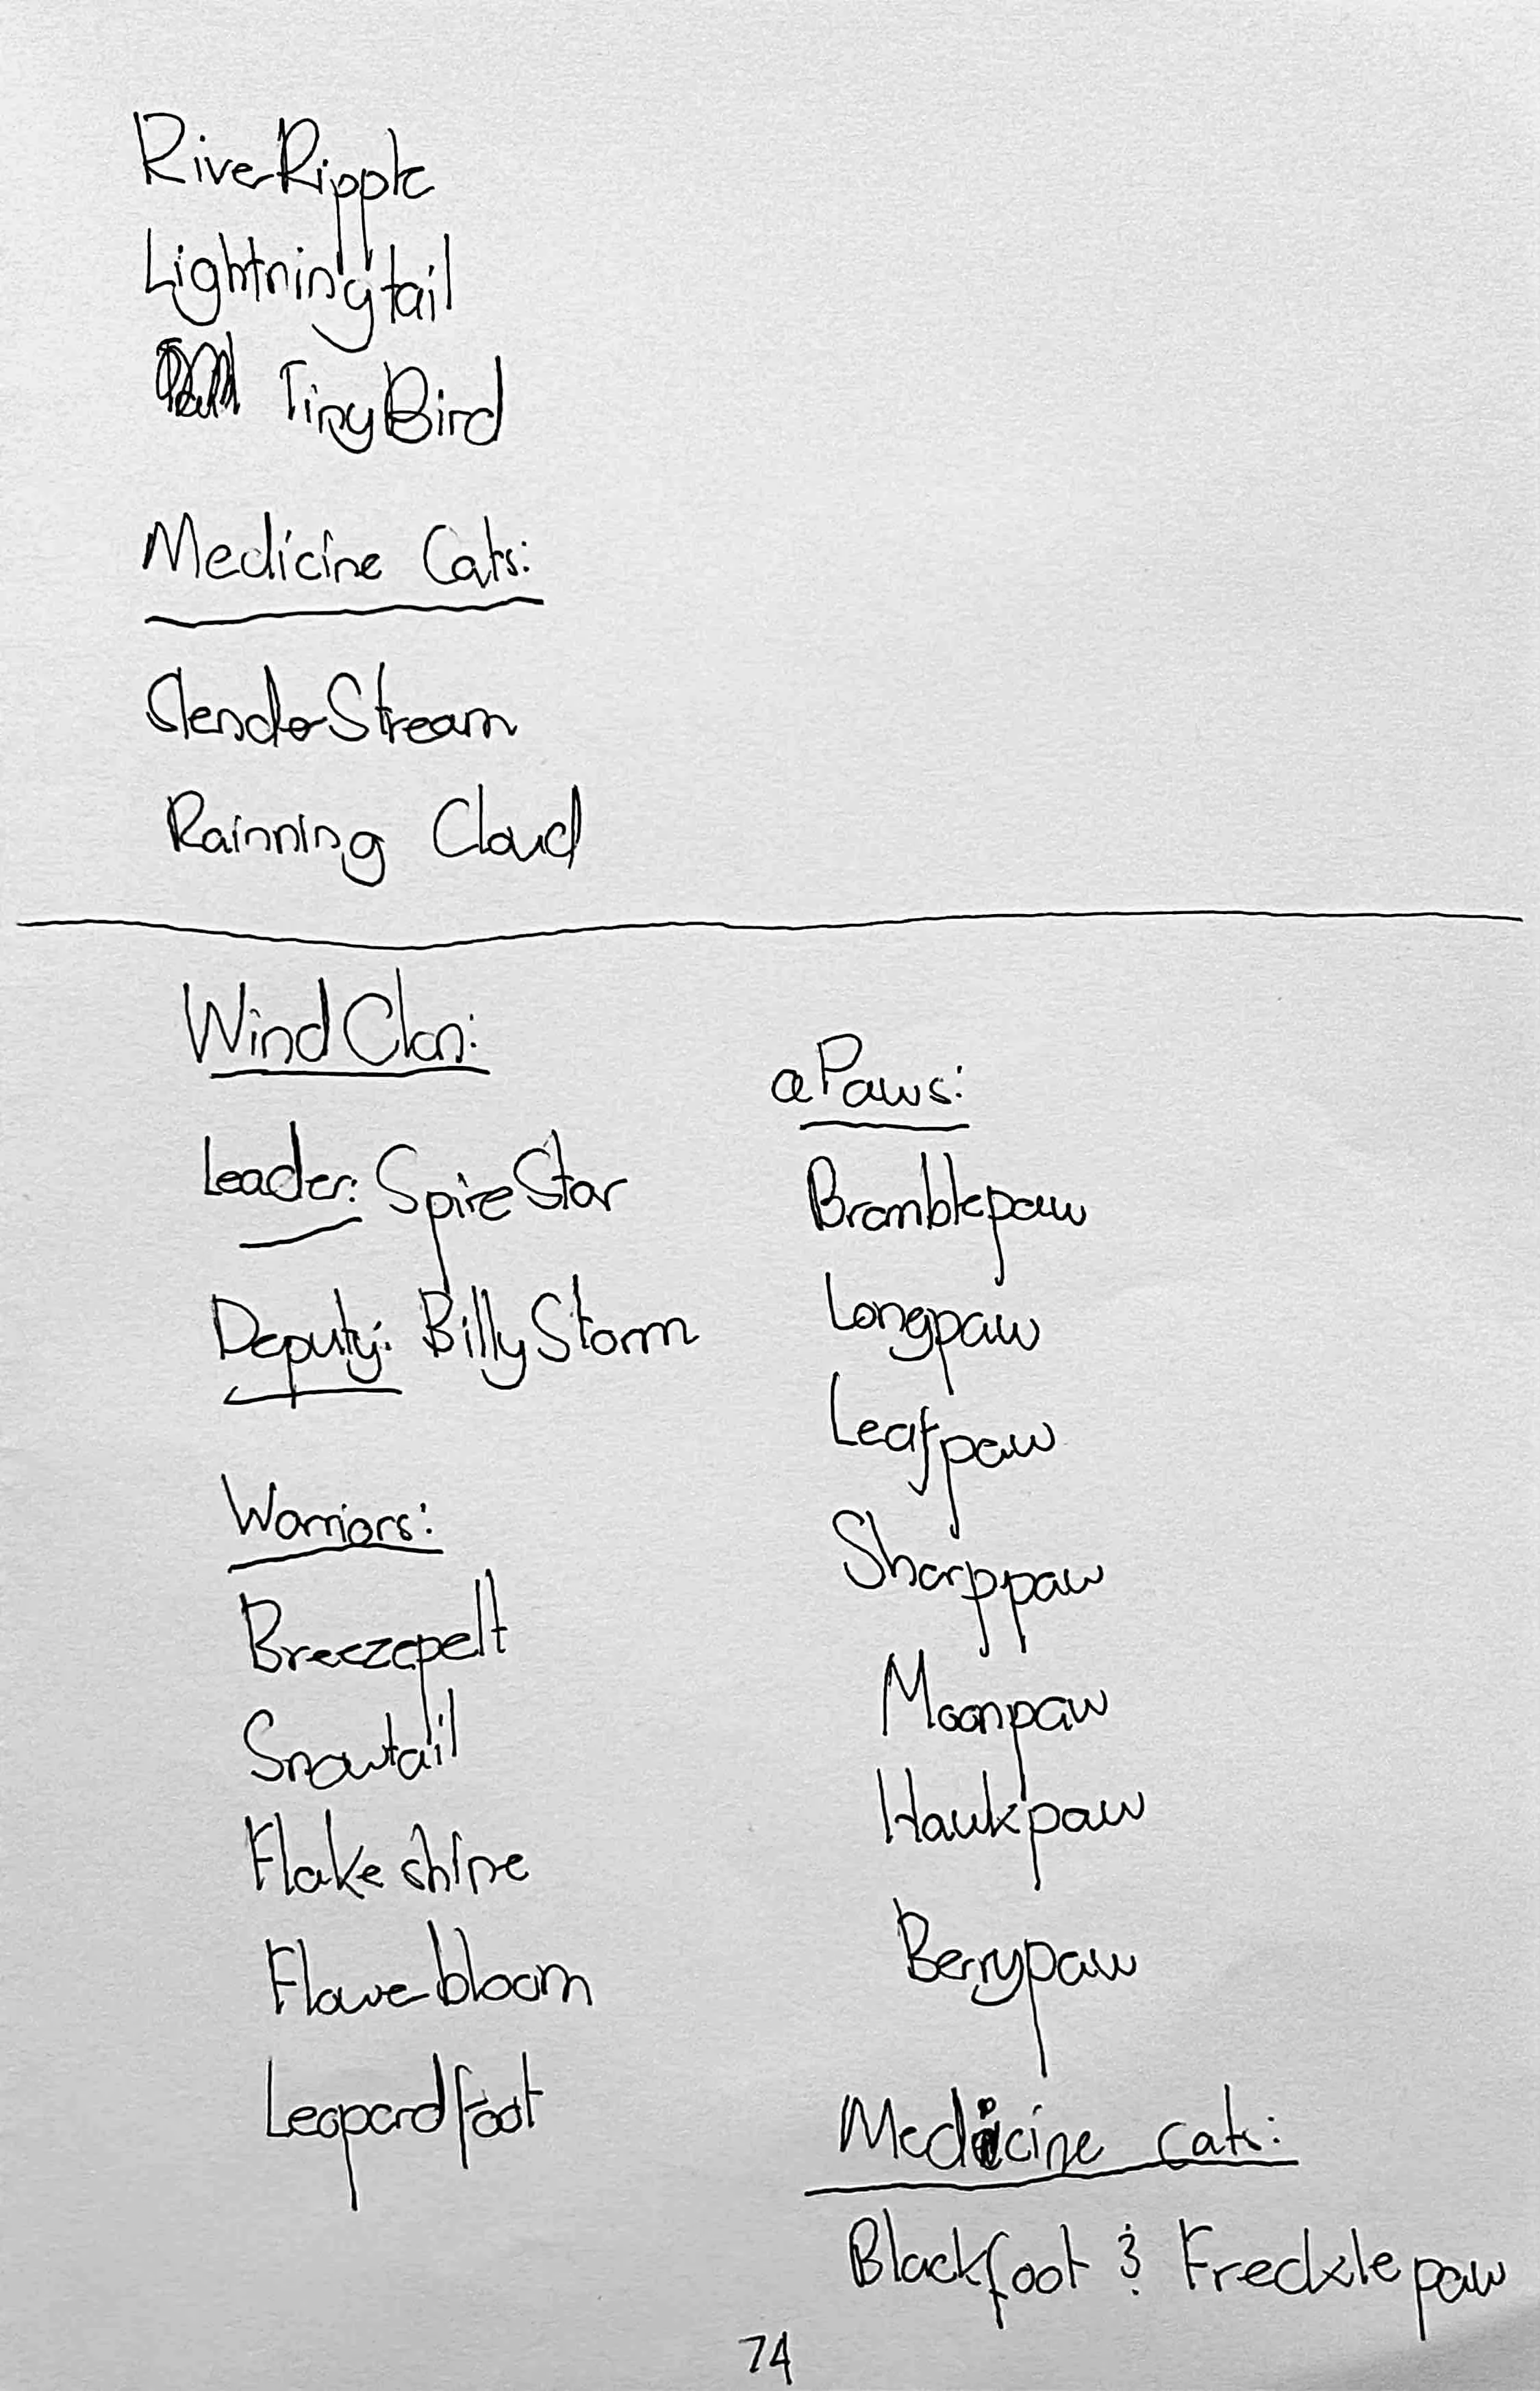 RiverRipple
Lightningtail
TinyBird
Medicine Cats:
SlenderStream
Rainning Cloud
WindClan:
Leader: SpireStar
Deputy: BillyStorm
Warriors:
Breezepelt
Snowtail
Flakeshine
Flowerbloom
Leopardfoot
aPaws:
Bramblepaw
Longpaw
Leafpaw
Sharppaw
Moonpaw
Hawkpaw
Berrypaw
Medicine cats:
Blackfoot & Frecklepaw
74